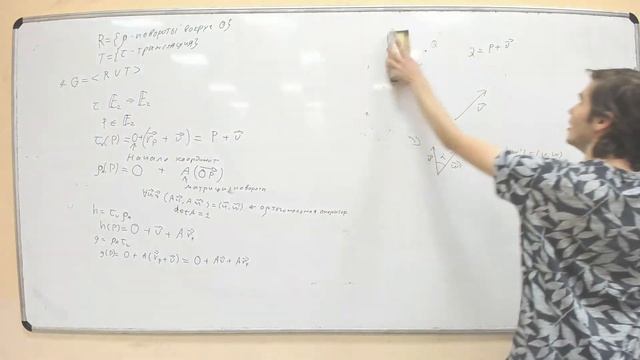 R = {ρ - повороты вокруг O}
T = {τ - трансляция}
G = < R ∪ T >
τ: E₂ → E₂
P ∈ E₂
τᵥ(P) = O + (r⃗ₚ + v⃗) = P + v⃗
Начало координат
ρ(P) = O + A(O⃗P)
матрица поворота
(Au⃗, Aw⃗) = (u⃗, w⃗) ← ортогональная
det A = 1
h = τᵥ ρₐ
h(P) = O + v⃗ + A r⃗ₚ
g = ρₐ τᵥ
g(P) = O + A(r⃗ₚ + v⃗) = O + Av⃗ + Ar⃗ₚ
Q
Q = P + v⃗
v⃗